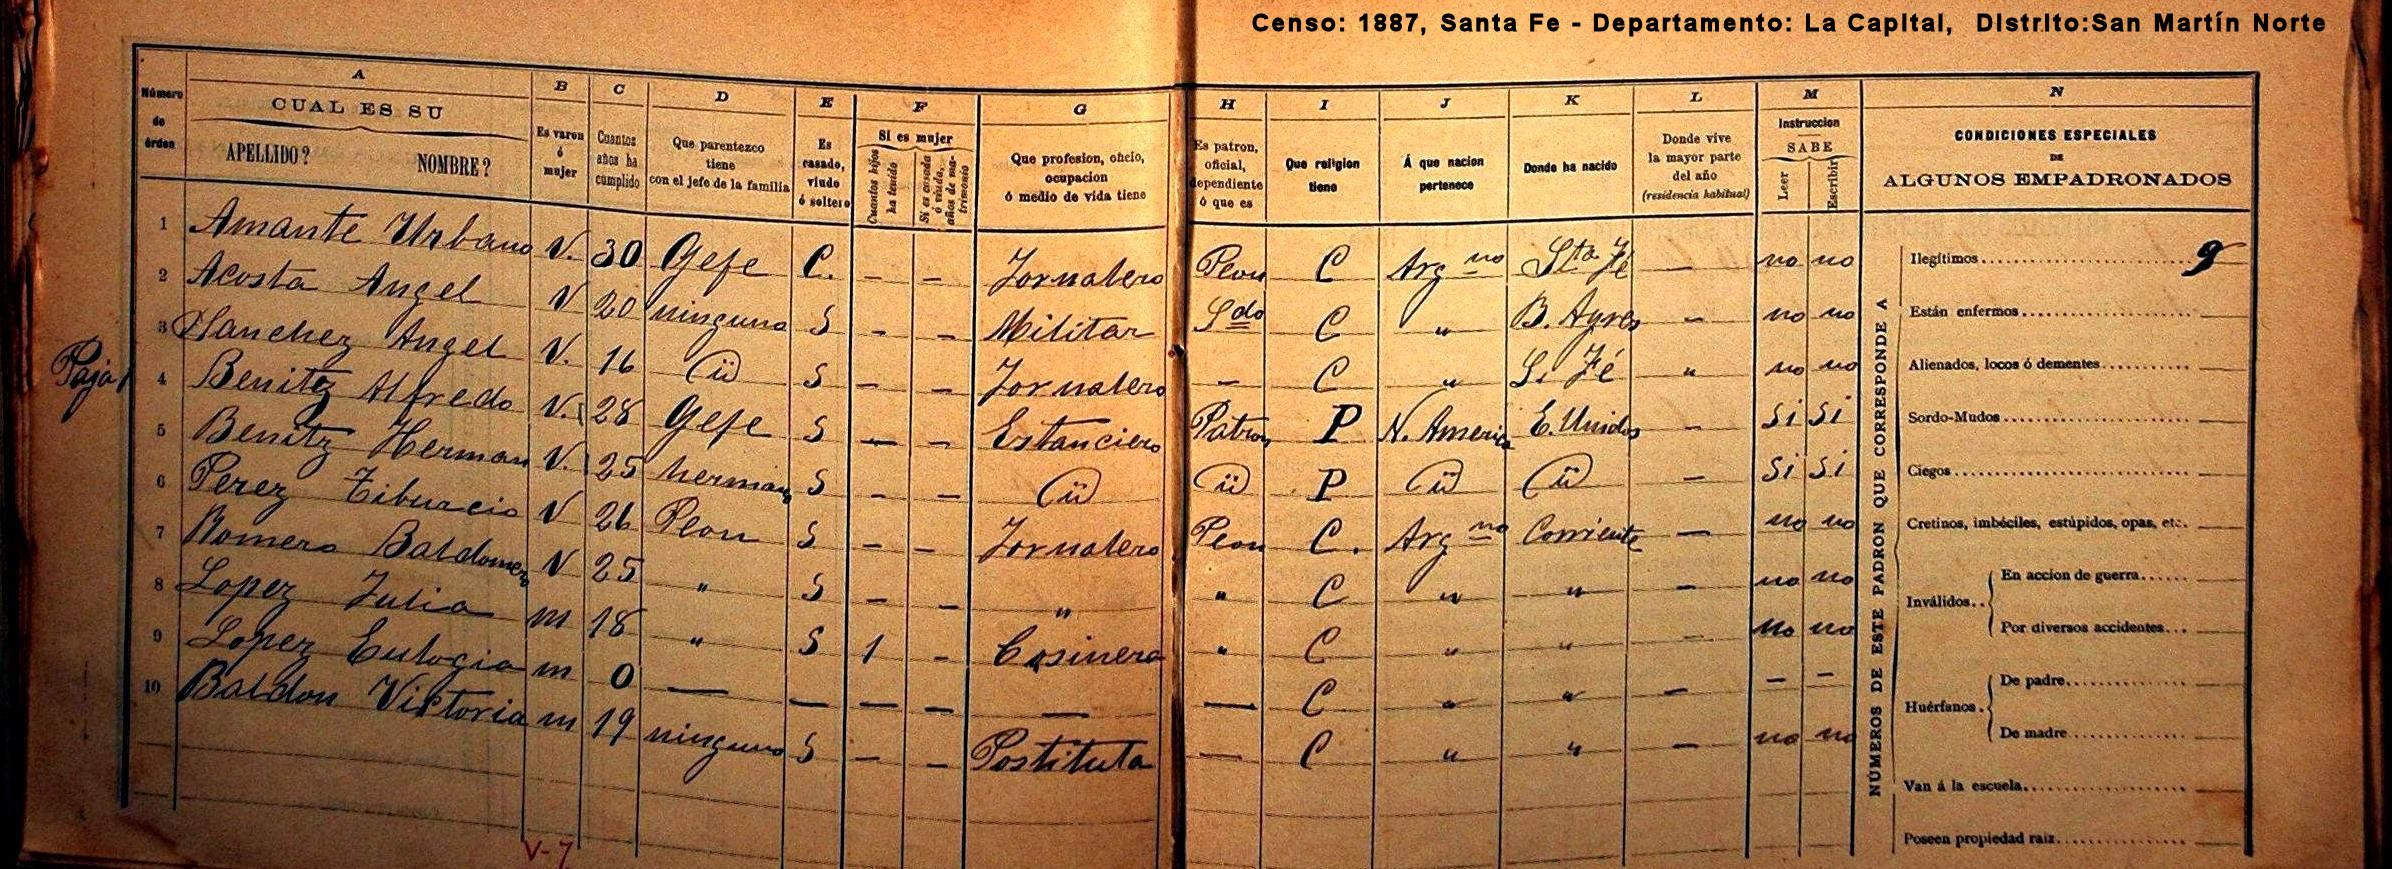 Censo: 1887, Santa Fe - Departamento: La Capital, Distrito:San Martín Norte
A B C D E F G H I J K L M N
Número de órden
CUAL ES SU
APELLIDO? NOMBRE?
Es varon ó mujer
Cuantos años ha cumplido
Que parentezco tiene con el jefe de la familia
Es casado, viudo ó soltero
Si es mujer
Cuantos hijos ha tenido
Si es casada ó viuda, años de matrimonio
Que profesion, oficio, ocupacion ó medio de vida tiene
Es patron, oficial, dependiente ó que es
Que religion tiene
Á que nacion pertenece
Donde ha nacido
Donde vive la mayor parte del año (residencia habitual)
Instruccion
SABE
Leer
Escribir
CONDICIONES ESPECIALES
DE
ALGUNOS EMPADRONADOS
1 Amante Urbano V. 30 Gefe C. – – Jornalero Peon C Arg no Sta Fé – no no
2 Acosta Angel V 20 ninguno S – – Militar Sdo C " B. Ayres – no no
3 Sanchez Angel V. 16 id S – – Jornalero – C " S. Fé " no no
Paja
4 Benitz Alfredo V. 28 Gefe S – – Estanciero Patron P N. America E. Unidos – Si Si
5 Benitz Herman V. 25 hermano S – – id id P id id – Si Si
6 Perez Tiburcio V 26 Peon S – – Jornalero Peon C. Arg no Corriente – no no
7 Romero Baldomero V 25 " S – – " " C " " – no no
8 Lopez Julia m 18 " S 1 – Cosinera " C " " – no no
9 Lopez Eulogia m 0 – – – – – – C " " – – –
10 Baldon Victoria m 19 ninguno S – – Postituta – C " " – no no
V-7
NÚMEROS DE ESTE PADRON QUE CORRESPONDE A
Ilegítimos 9
Están enfermos
Alienados, locos ó dementes
Sordo-Mudos
Ciegos
Cretinos, imbéciles, estúpidos, opas, etc.
Inválidos.. En accion de guerra
Por diversos accidentes
Huérfanos. De padre
De madre
Van á la escuela
Poseen propiedad raiz